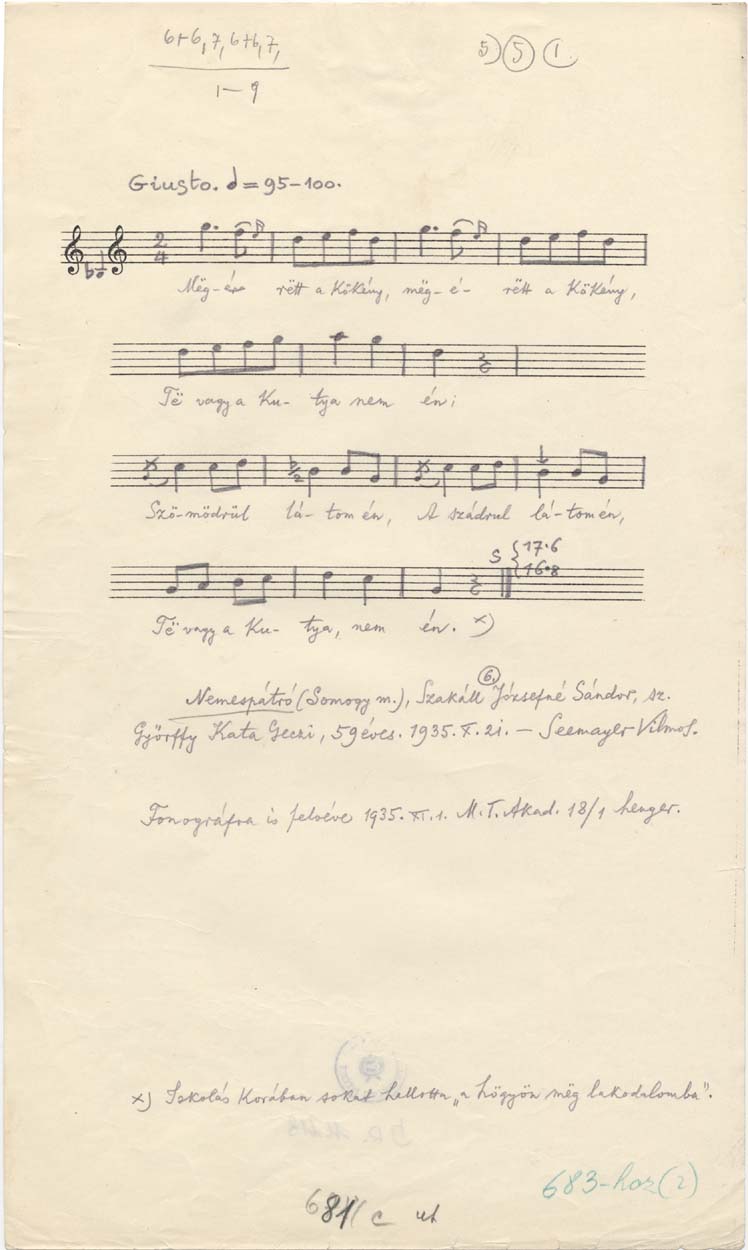 6+6, 7, 6+6, 7,
1–9
5) (5) (1
Giusto. 𝅗𝅥 = 95–100.
2
4
Mëg-é- rëtt a Kökény, mëg-é- rëtt a Kökény,
Të vagy a Ku- tya nem én;
Szö-mödrül lá- tom én, A szádrul lá-tom én,
S { 17·6
16·8
Të vagy a Ku- tya, nem én. x)
6.
Nemespátró (Somogy m.), Szakáll Józsefné Sándor, sz.
Györffy Kata Geczi, 59 éves. 1935. X. 21. — Seemayer Vilmos.
Fonográfra is felvéve 1935. XI. 1. M. T. Akad. 18/1 henger.
x) Iskolás Korában sokat hallotta „a högyön mëg lakodalomba".
683-hoz (2)
681 c ut